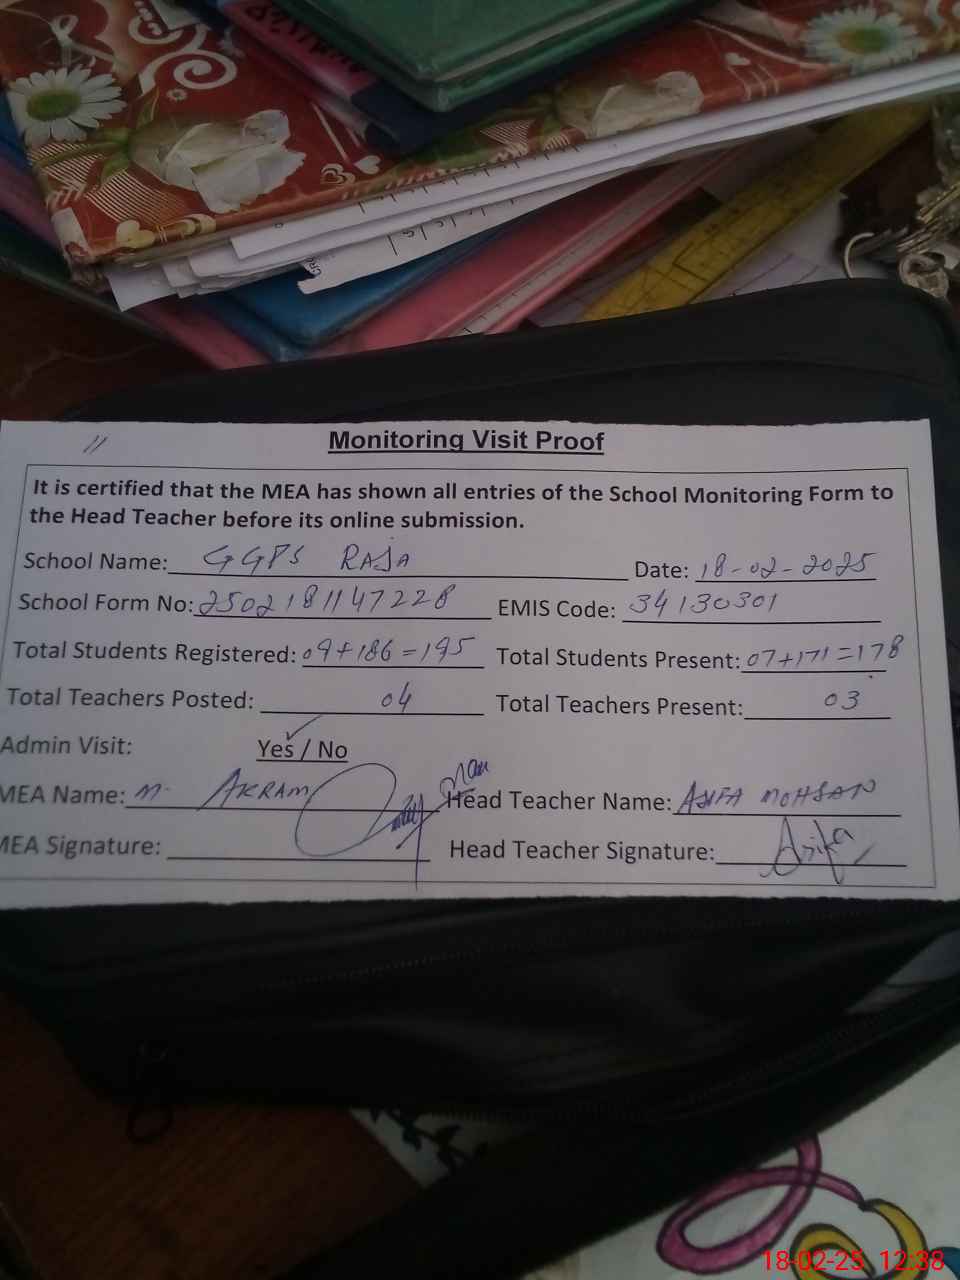 11
Monitoring Visit Proof
It is certified that the MEA has shown all entries of the School Monitoring Form to
the Head Teacher before its online submission.
School Name: GGPS RAJA Date: 18-02-2025
School Form No: 2502181147228 EMIS Code: 34130301
Total Students Registered: 09+186=195 Total Students Present: 07+171=178
Total Teachers Posted: 04 Total Teachers Present: 03
Admin Visit: Yes / No
MEA Name: M. AKRAM Head Teacher Name: ASIFA MOHSAN
MEA Signature: Head Teacher Signature: Asifa
18-02-25 12:38